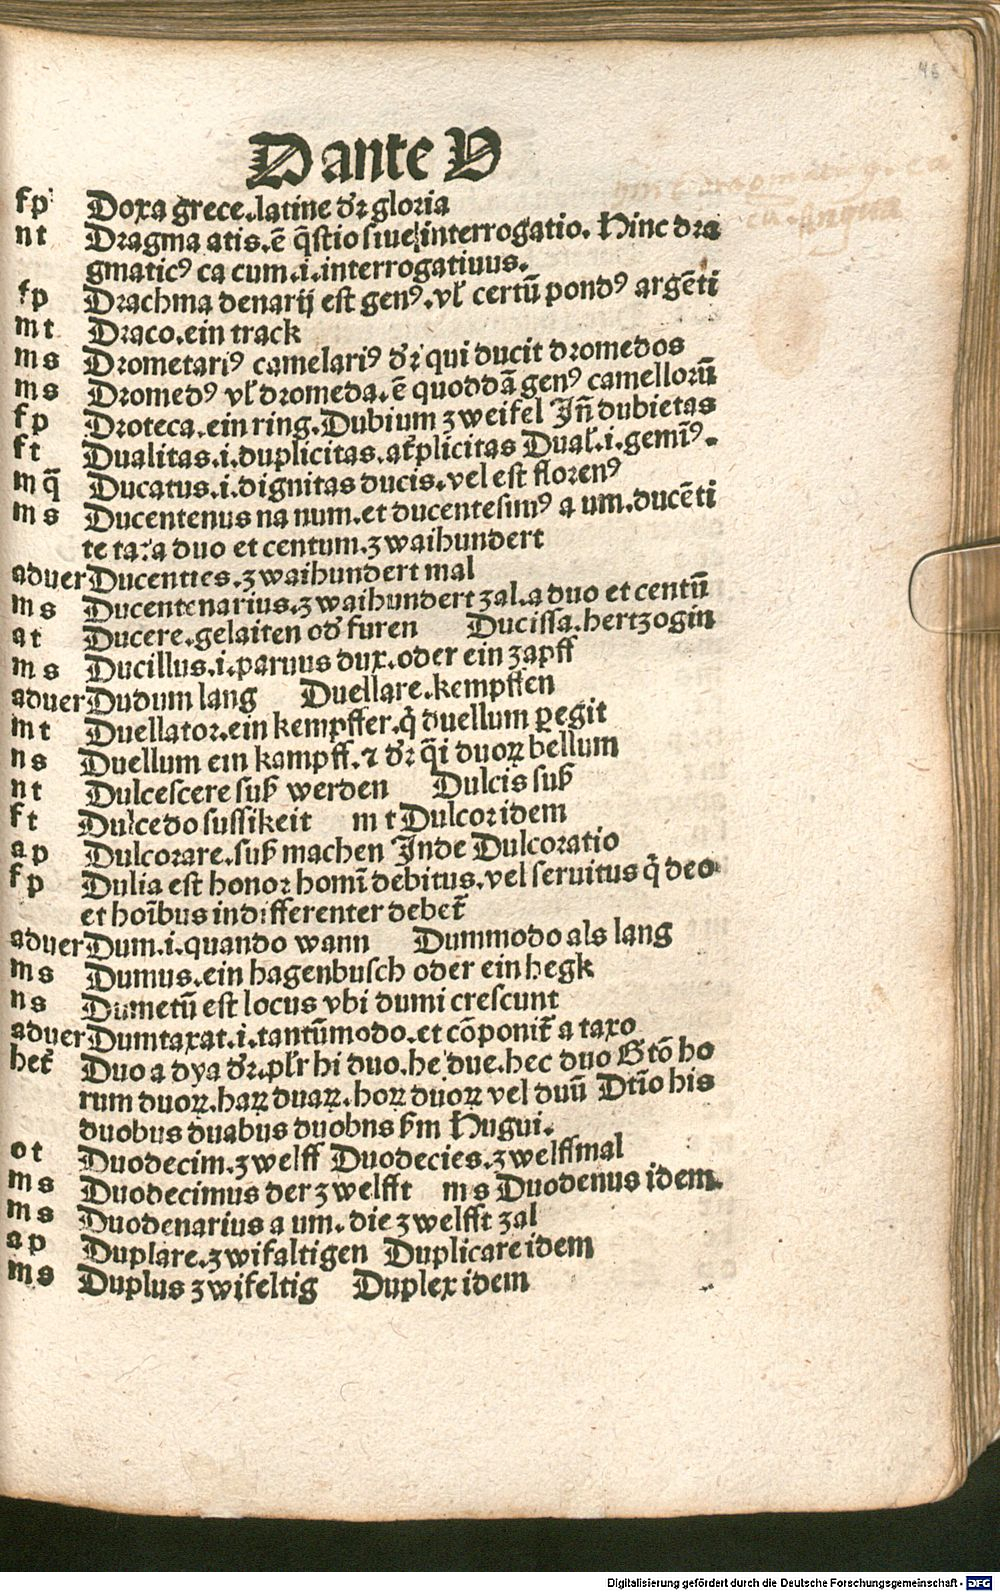 46
Dante V
fp Doxa grece.latine dr̄ gloria
nt Dragma atis.ē q̄stio siue interrogatio. Hinc dra
gmaticꝰ ca cum.i.interrogatiuus.
fp Drachma denarij est genꝰ.vl̓ certū pondꝰ argēti
mt Draco.ein track
ms Drometariꝰ camelariꝰ dr̄ qui ducit dromedos
ms Dromedꝰ vl̓ dromeda.ē quoddā genꝰ camellorū
fp Droteca.ein ring.Dubium zweifel Jn̄ dubietas
ft Dualitas.i.duplicitas.at̄plicitas Dual̓.i.gemīꝰ.
mq̄ Ducatus.i.dignitas ducis.vel est florenꝰ
ms Ducentenus na num.et ducentesimꝰ a um.ducēti
te ta.a duo et centum.zwaihundert
aduer Ducenties.zwaihundert mal
ms Ducentenarius.zwaihundert zal.a duo et centū
at Ducere.gelaiten od̓ furen Ducissa.hertzogin
ms Ducillus.i.paruus dux.oder ein zapff
aduer Dudum lang Duellare.kempffen
mt Duellator.ein kempffer.q̇ duellum ꝑegit
ns Duellum ein kampff.⁊ dr̄ q̄i duoꝝ bellum
nt Dulcescere suß werden Dulcis suß
ft Dulcedo sussikeit mt Dulcor idem
ap Dulcorare.suß machen Jnde Dulcoratio
fp Dulia est honor homī debitus.vel seruitus q̇ deo
et hoībus indifferenter debet̄
aduer Dum.i.quando wann Dummodo als lang
ms Dumus.ein hagenbusch oder ein hegk
ns Dumetū est locus vbi dumi crescunt
aduer Dumtaxat.i.tantūmodo.et cōponit̄ a taxo
het̄ Duo a dya dr̄.pl̓r hi duo.he due.hec duo Gtō ho
rum duoꝝ.haꝝ duaꝝ.hoꝝ duoꝝ vel duū Dtīo his
duobus duabus duobns ẜm Hugui.
ot Duodecim.zwelff Duodecies.zwelffmal
ms Duodecimus der zwelfft ms Duodenus idem.
ms Duodenarius a um.die zwelfft zal
ap Duplare.zwifaltigen Duplicare idem
ms Duplus zwifeltig Duplex idem
Digitalisierung gefördert durch die Deutsche Forschungsgemeinschaft - DFG